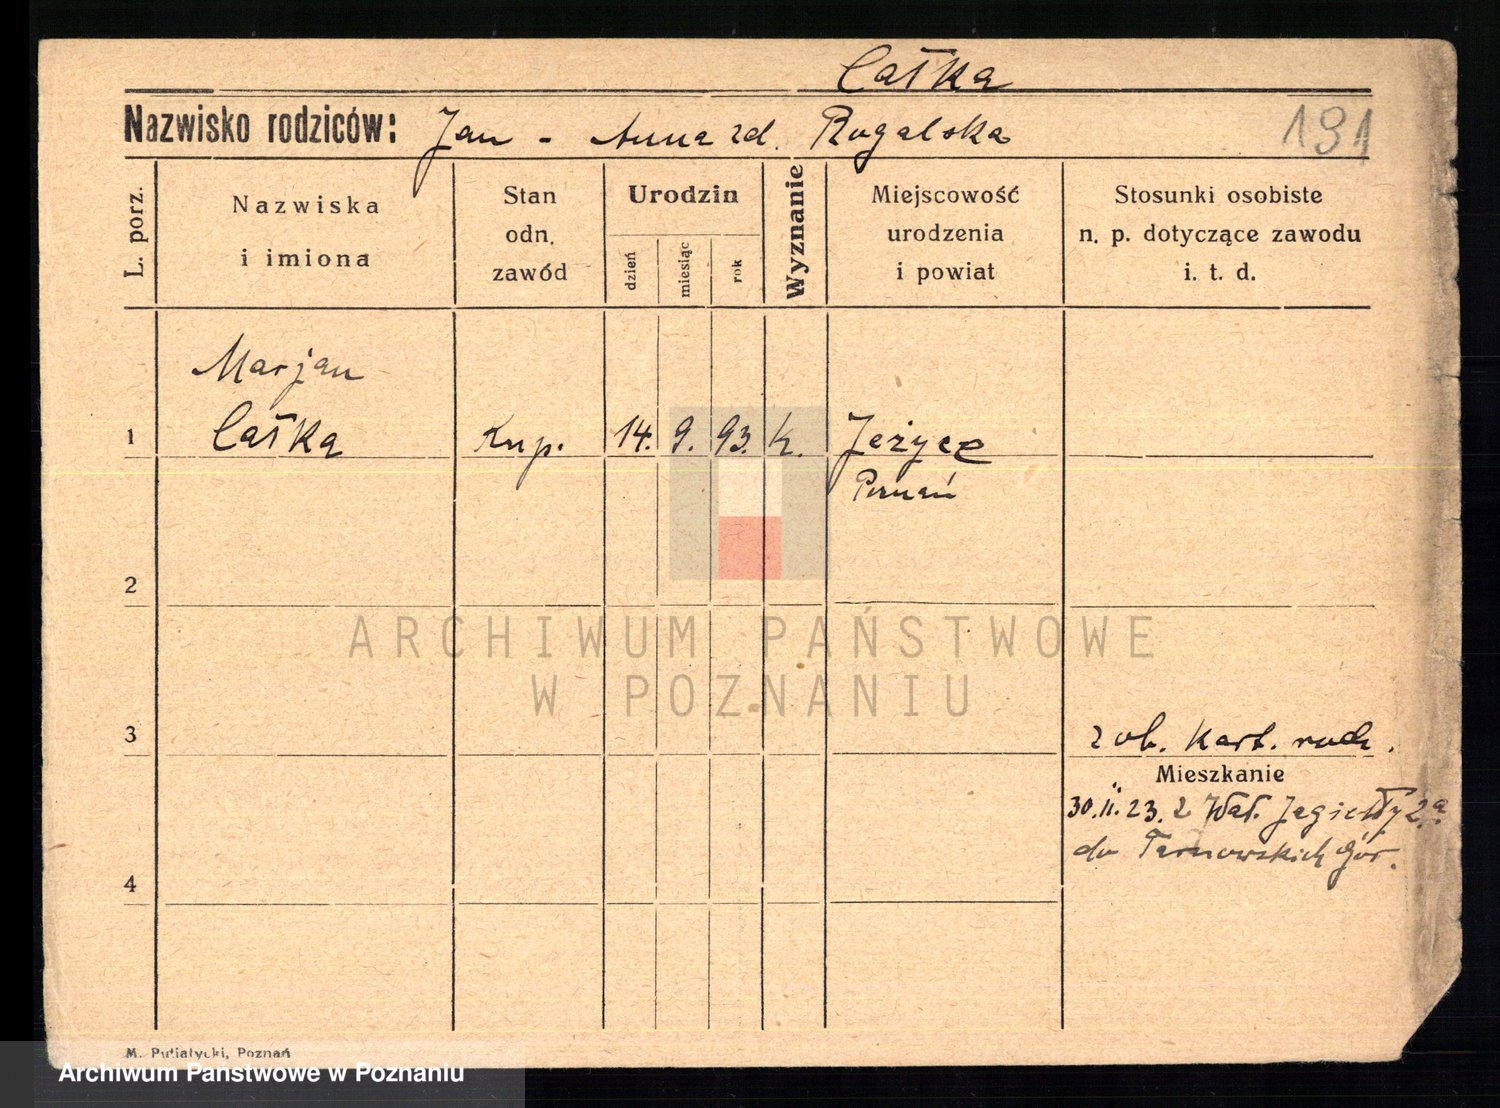 Całka
Nazwisko rodziców: Jan - Anna zd. Rogalska
191
L. porz.
Nazwiska
i imiona
Stan
odn.
zawód
Urodzin
dzień
miesiąc
rok
Wyznanie
Miejscowość
urodzenia
i powiat
Stosunki osobiste
n. p. dotyczące zawodu
i. t. d.
Marjan
1 Całka Kup. 14. 9. 93. k. Jeżyce
Poznań
2
ARCHIWUM PAŃSTWOWE
W POZNANIU
3 zob. kart. rodz.
Mieszkanie
30.II.23. z Wał. Jagiełły 2a
do Tarnowskich Gór.
4
M. Putiatycki, Poznań
Archiwum Państwowe w Poznaniu